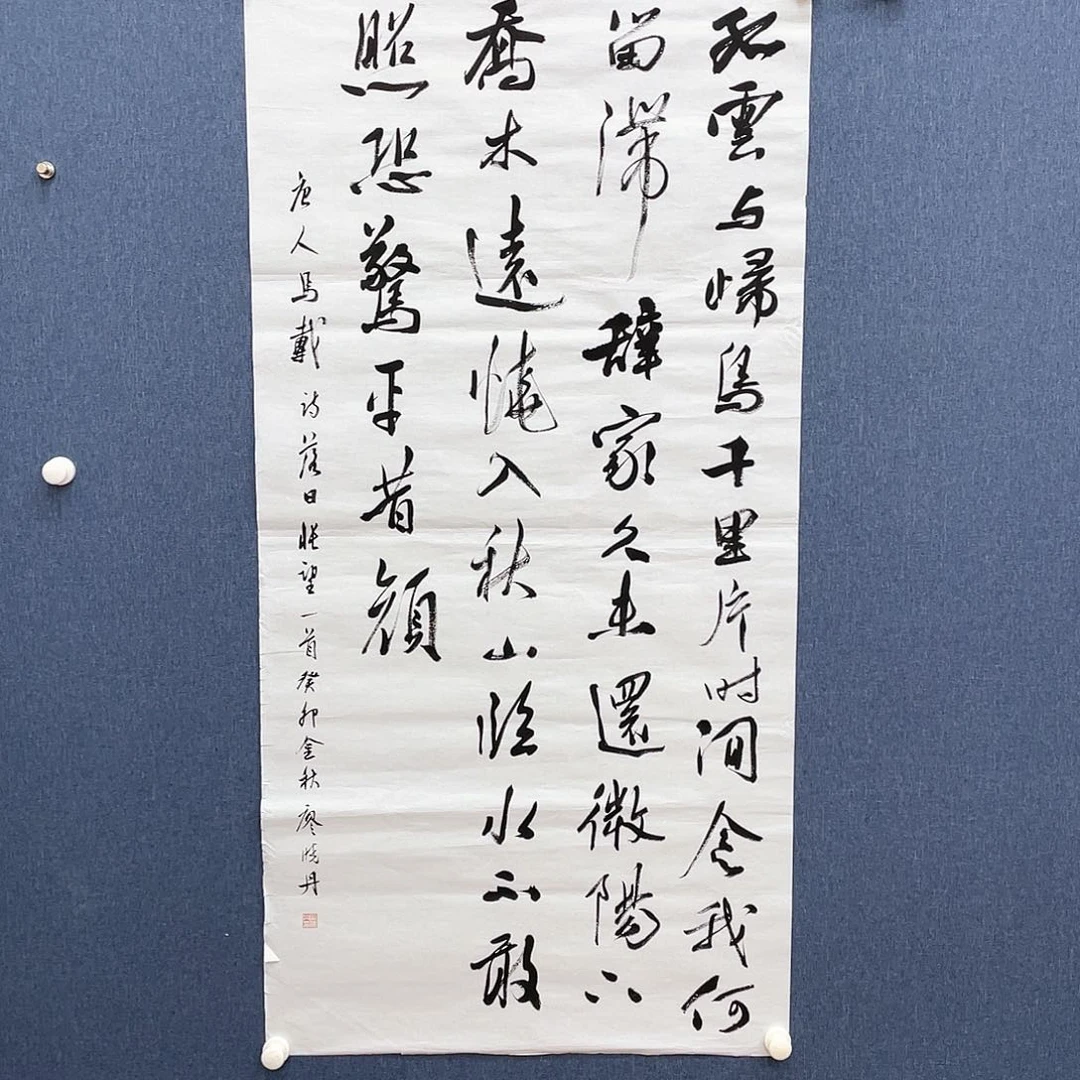 孤雲与帰鳥千里片时间念我何
留滞辭家久未還微陽下
喬木遠燒入秋山臨水不敢
照恐驚平昔顔
唐人馬戴诗落日悵望一首癸卯金秋廖晓丹